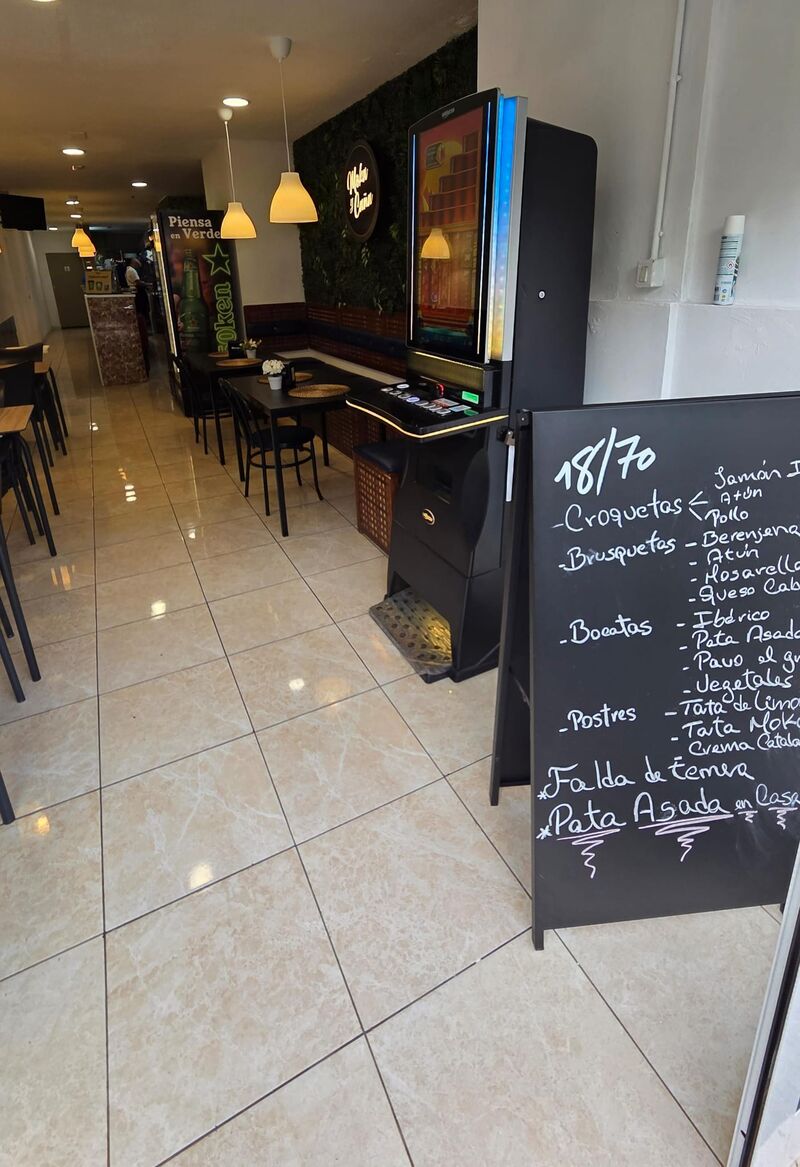 Piensa
en Verde
18/70
-Croquetas < Jamón I
Atún
Pollo
-Brusquetas - Berenjena
- Atún
- Mosarella
- Queso Cab
-Bocatas - Ibérico
- Pata Asada
- Pavo al gr
- Vegetales
-Postres - Tata de Limo
- Tata Moka
Crema Catala
*Falda de temera
*Pata Asada en Casa